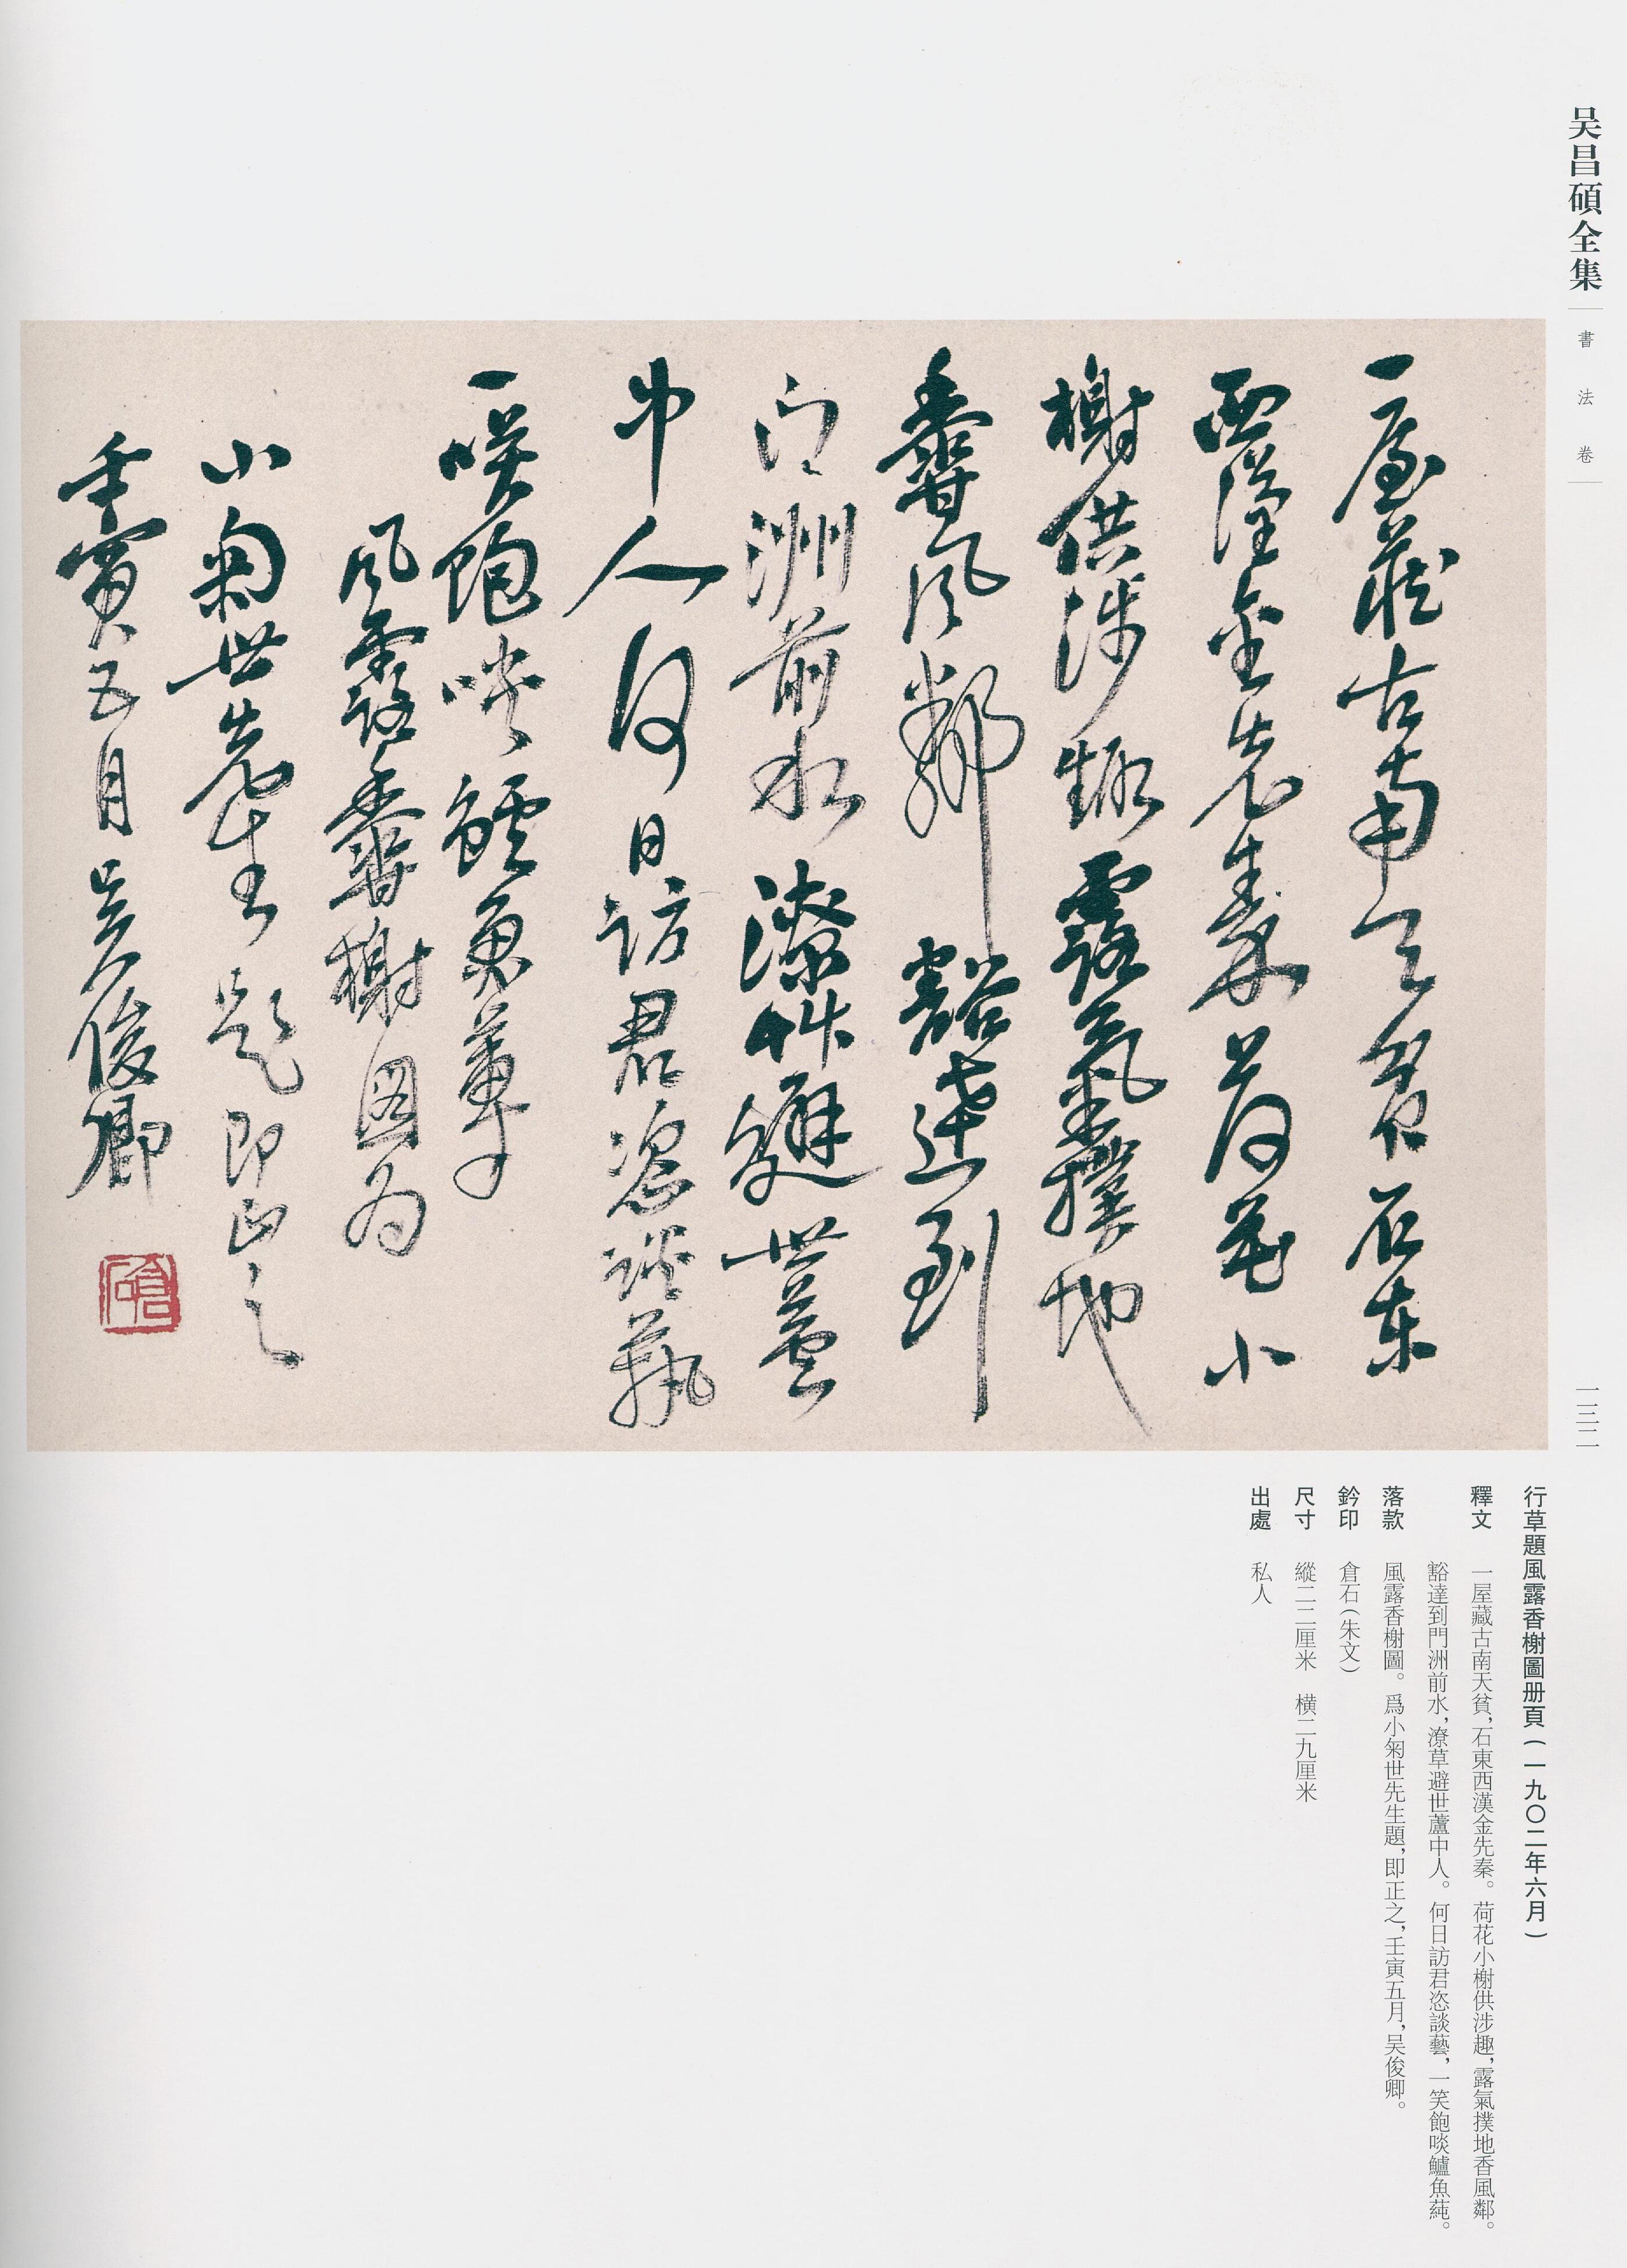 吴昌碩全集
書法卷
一屋藏古南天貧石東
西漢金先秦荷花小
榭供涉趣露氣撲地
香風鄰豁達到
门洲前水潦草避世蘆
中人何日訪君恣談藝
一咲飽啖鱸魚蓴
風露香榭图为
小匊世先生題即正之
壬寅五月吳俊卿
倉石
一三二
行草題風露香榭圖册頁(一九〇二年六月)
釋文 一屋藏古南天貧,石東西漢金先秦。荷花小榭供涉趣,露氣撲地香風鄰。
豁達到門洲前水,潦草避世蘆中人。何日訪君恣談藝,一笑飽啖鱸魚蒓。
落款 風露香榭圖。爲小匊世先生題,即正之,壬寅五月,吴俊卿。
鈐印 倉石(朱文)
尺寸 縱二二厘米 横二九厘米
出處 私人